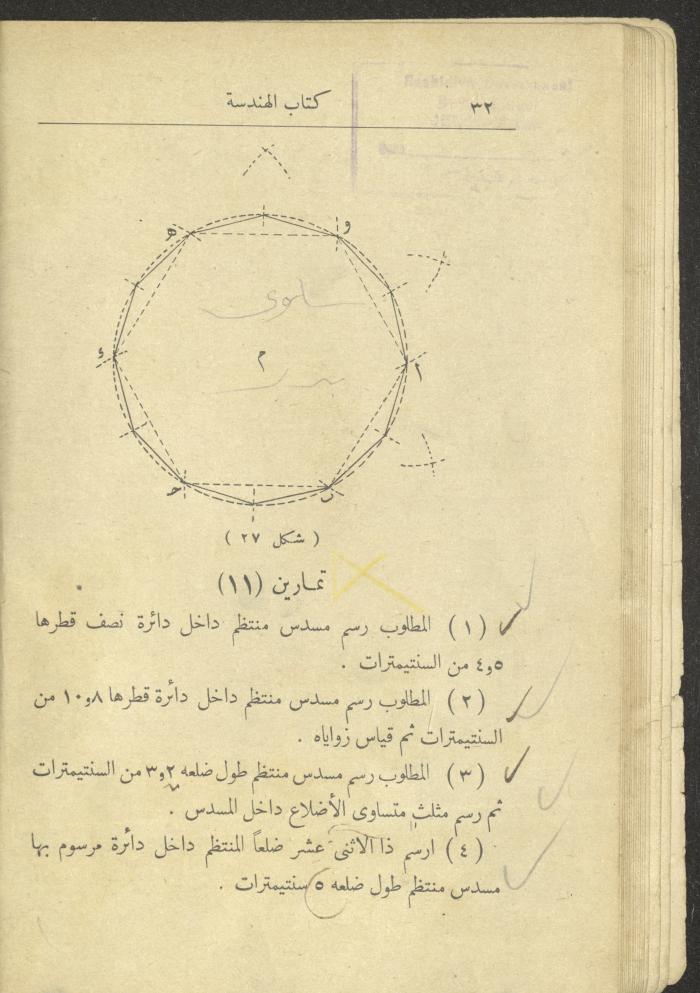 ٣٢
كتاب الهندسة
و
ه
أ
م
ء
ب
ح
( شكل ٢٧ )
تمارين (١١)
( ١ ) المطلوب رسم مسدس منتظم داخل دائرة نصف قطرها
٥و٤ من السنتيمترات .
( ٢ ) المطلوب رسم مسدس منتظم داخل دائرة قطرها ٨و١٠ من
السنتيمترات ثم قياس زواياه .
( ٣ ) المطلوب رسم مسدس منتظم طول ضلعه ٢و٣ من السنتيمترات
ثم رسم مثلث متساوى الأضلاع داخل المسدس .
( ٤ ) ارسم ذا الاثنى عشر ضلعاً المنتظم داخل دائرة مرسوم بها
مسدس منتظم طول ضلعه ٥ سنتيمترات .